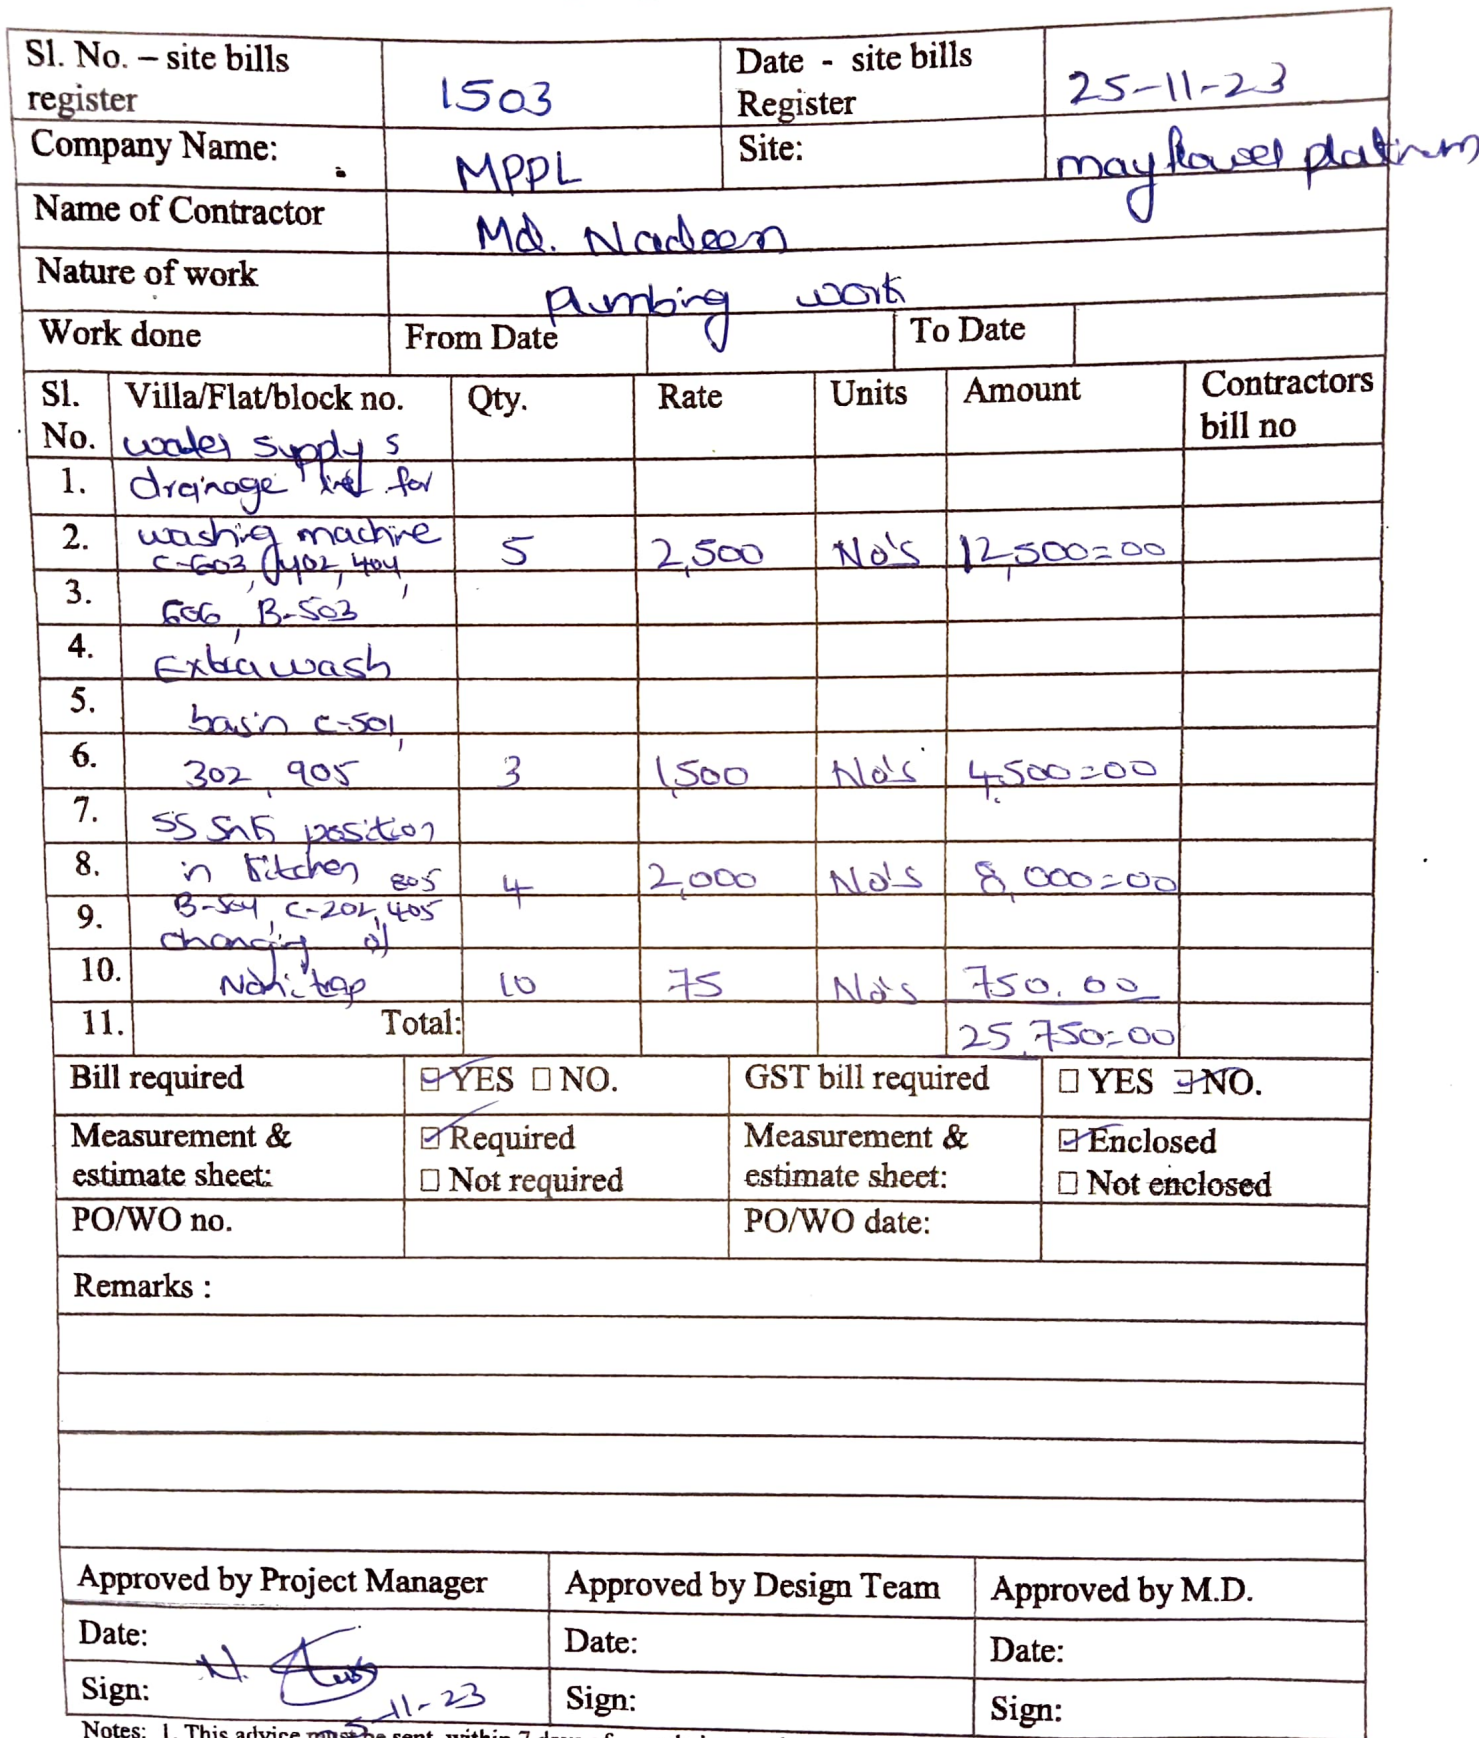 Sl. No. – site bills register 1503 Date - site bills Register 25-11-23
Company Name: MPPL Site: mayflower platinum
Name of Contractor Md. Nadeem
Nature of work Plumbing work
Work done From Date To Date
Sl. No. Villa/Flat/block no. Qty. Rate Units Amount Contractors bill no
water supply &
1. drainage for
2. washing machine 5 2,500 No's 12,500=00
C-603, 402, 404,
3. 606, B-503
4. Extra wash
5. basin C-501,
6. 302, 905 3 1,500 No's 4,500=00
7. SS Sink position
8. in kitchen 805 4 2,000 No's 8,000=00
9. B-504, C-202, 405
changing of
10. Nani trap 10 75 No's 750.00
11. Total: 25,750=00
Bill required ☑ YES ☐ NO. GST bill required ☐ YES ☑ NO.
Measurement & estimate sheet: ☑ Required ☐ Not required Measurement & estimate sheet: ☑ Enclosed ☐ Not enclosed
PO/WO no. PO/WO date:
Remarks :
Approved by Project Manager Approved by Design Team Approved by M.D.
Date: Date: Date:
Sign: -11-23 Sign: Sign:
Notes: 1. This advice must be sent within 7 days